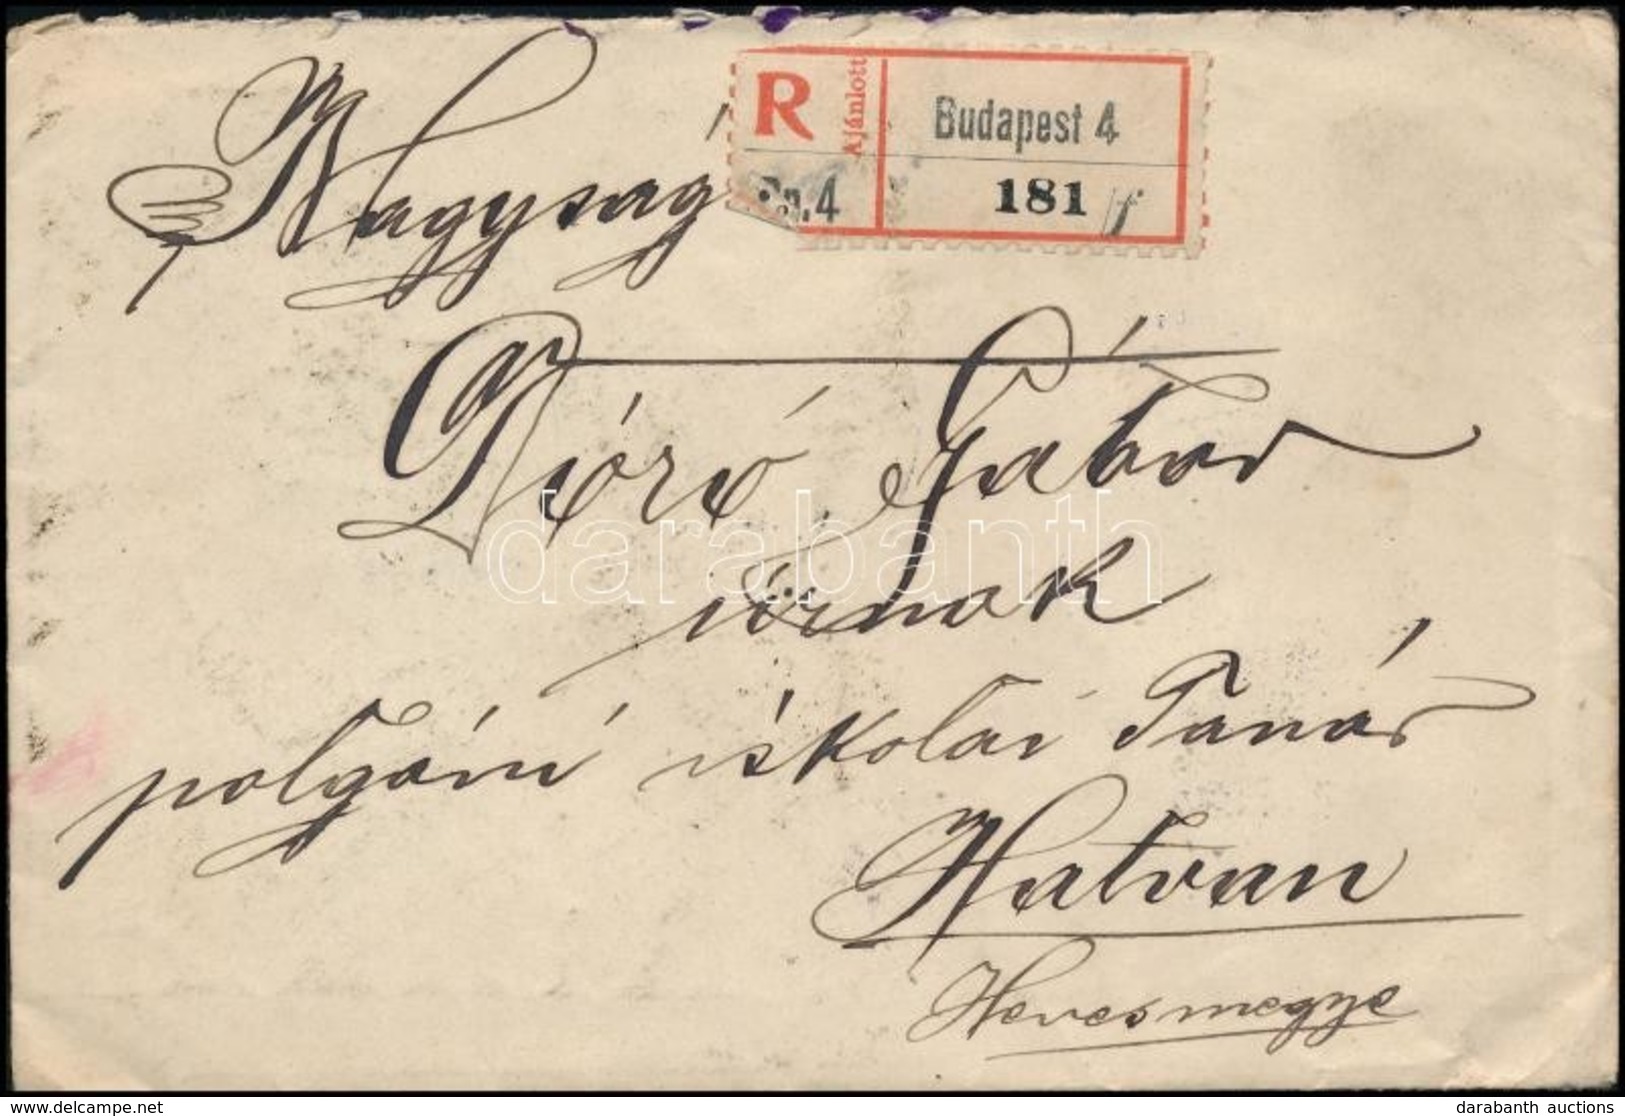 R Ajánlott Budapest 4
181
Nagyság
Gábor
úrnak
polgári iskolai Tanár
Hatvan
Hevesmegye
darabanth
delcampe.net
darabanth auctions